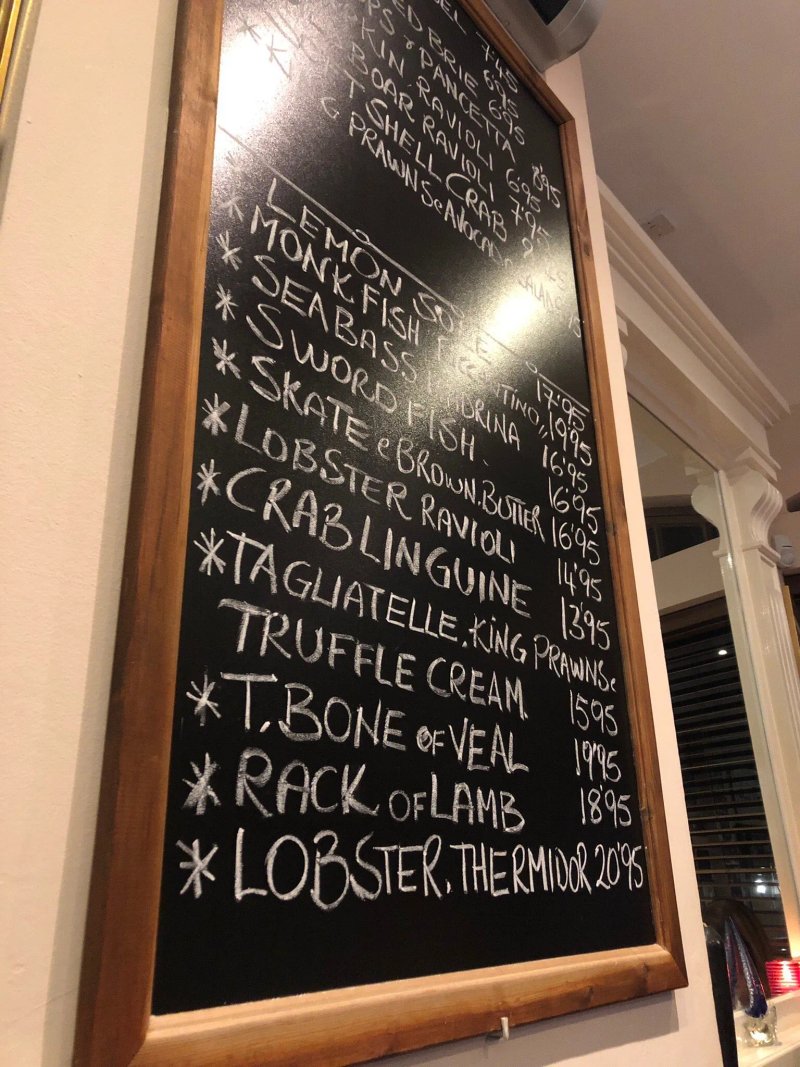 EL 7'45
ED BRIE 6'95
RS & PANCETTA
KIN RAVIOLI 8'95
BOAR RAVIOLI 6'95
T SHELL CRAB 7'95
G PRAWNS & AVOCADO
* LEMON SOLE 17'95
* MONK FISH 19'95
* SEABASS 16'95
* SWORD FISH. 16'95
* SKATE & BROWN.BUTTER 16'95
* LOBSTER RAVIOLI 14'95
* CRAB LINGUINE 13'95
* TAGLIATELLE.KING PRAWNS &
TRUFFLE CREAM. 1595
* T.BONE OF VEAL 19'95
* RACK OF LAMB 18'95
* LOBSTER.THERMIDOR 20'95